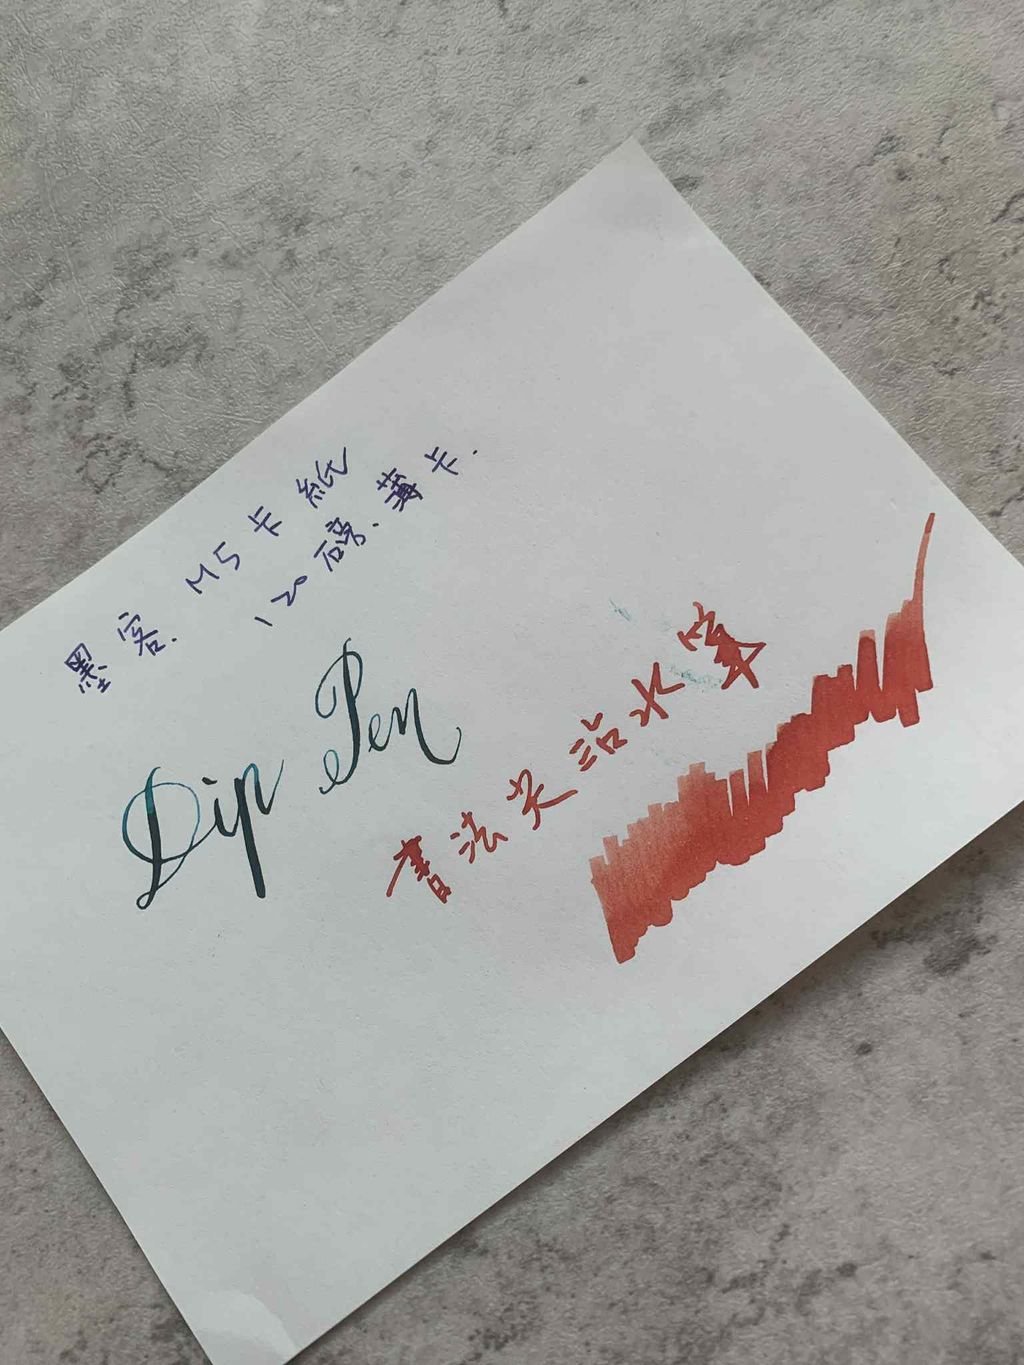 墨客. M5卡紙
120磅. 薄卡.
Dip Pen
書法尖鉆水筆